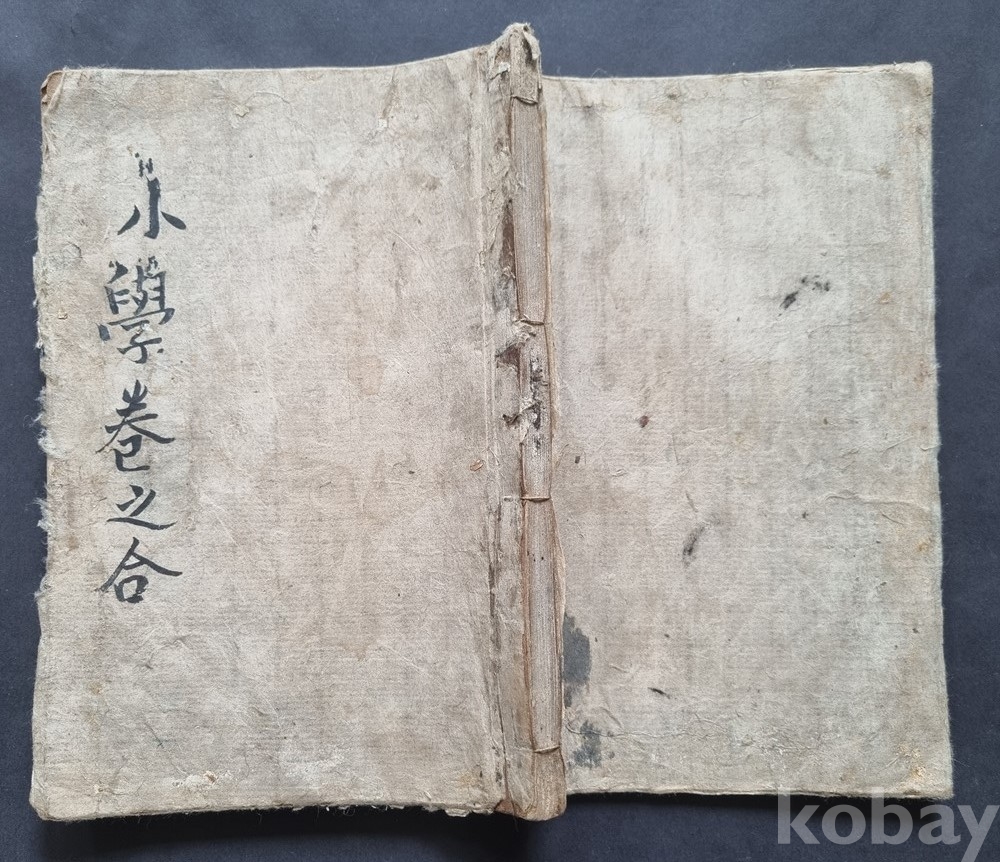 小學卷之合
kobay